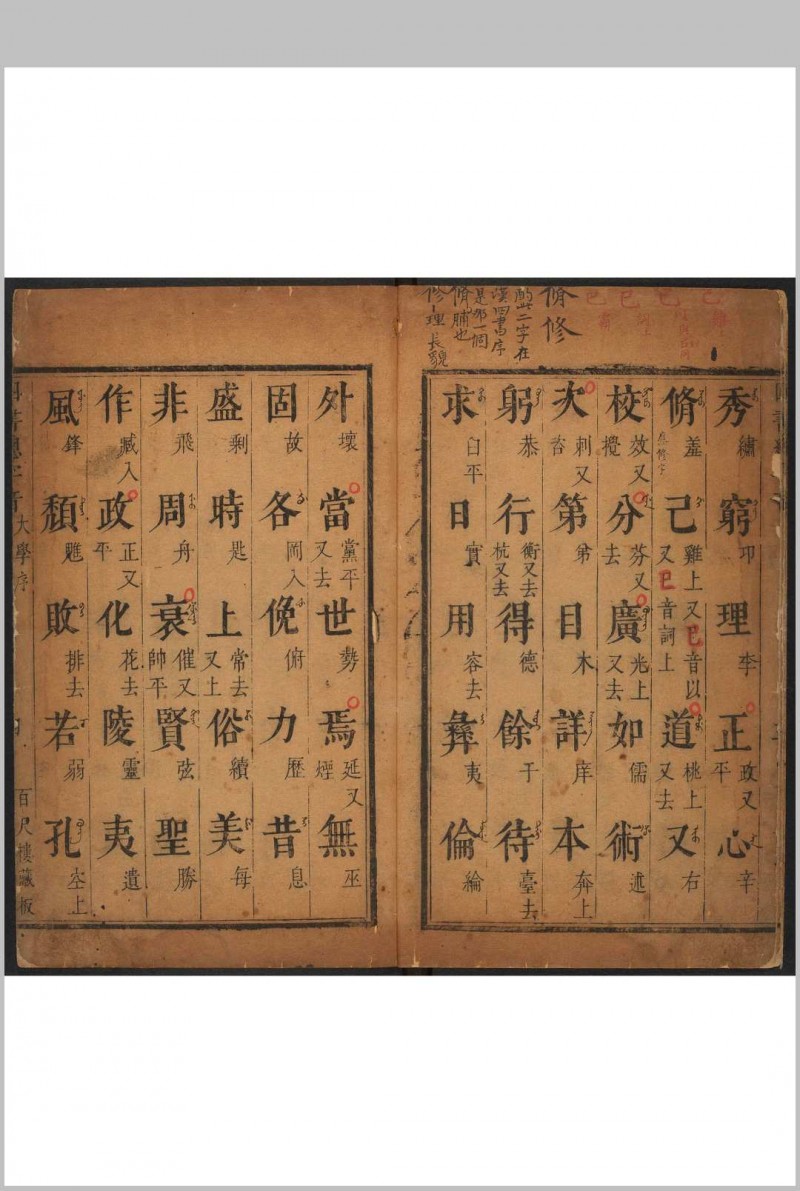 脩修
酌此二字在
漢四書序
是那一個
脩脯也
修理長貌
秀繡 窮邛 理李 正政又平 心辛
脩羞 己雞上又巳音以又巳音詞上 道桃上又去 又右
校效又攪 分芬又去 廣光上又去 如儒 術述
次刺又咨 第弟 目木 詳庠 本奔上
躬恭 行衡又去杭又去 得德 餘于 待臺去
求臼平 日實 用容去 彝夷 倫綸
外壞 當黨平又去 世勢 焉延又煙 無巫
固故 各岡入 俛俯 力歷 昔息
盛剩 時匙 上常去又上 俗續 美每
非飛 周舟 衰催又帥平 賢弦 聖勝
作臧入 政正又平 化花去 陵靈 夷遺
風鋒 頹魋 敗排去 若弱 孔空上
大學序
百尺樓藏板